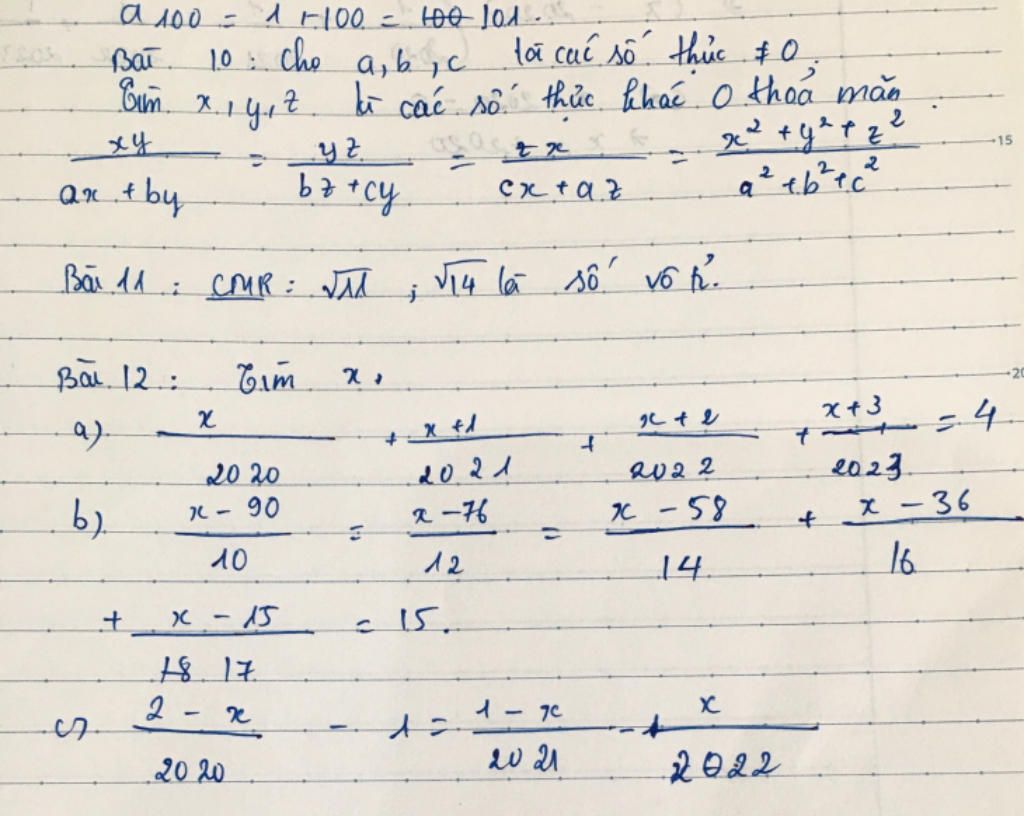 a 100 = 1 + 100 = 100 101.
Bài 10 : Cho a, b, c là các số thực ≠ 0.
Tìm x, y, z là các số thực khác 0 thoả mãn
xy / (ax + by) = yz / (bz + cy) = zx / (cx + az) = (x² + y² + z²) / (a² + b² + c²)
15
Bài 11 : CMR : √11 ; √14 là số vô tỉ.
Bài 12 : Tìm x.
20
a) x / 2020 + (x + 1) / 2021 + (x + 2) / 2022 + (x + 3) / 2023 = 4
b) (x - 90) / 10 = (x - 76) / 12 = (x - 58) / 14 + (x - 36) / 16
+ (x - 15) / 18 17 = 15.
c) (2 - x) / 2020 - 1 = (1 - x) / 2021 - x / 2022